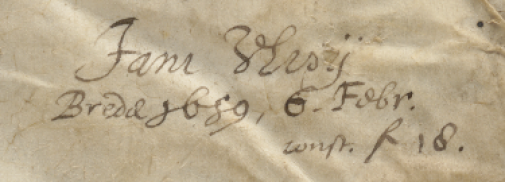 Jani Vlitii
Bredæ 1659, 6. Febr.
const. f 18.